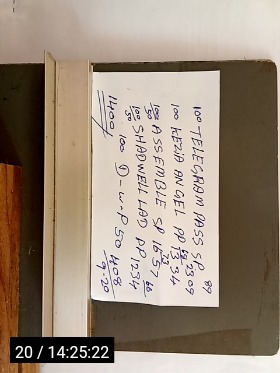 100 TELEGRAM PASS SP 2309
100 KEZIA ANGEL PP 1334
100/50 ASSEMBLE SP 1657
100/50 SHADWELL LAD PP 1254
1400 100 ① - W-P 50 408
9.20
20 / 14:25:22